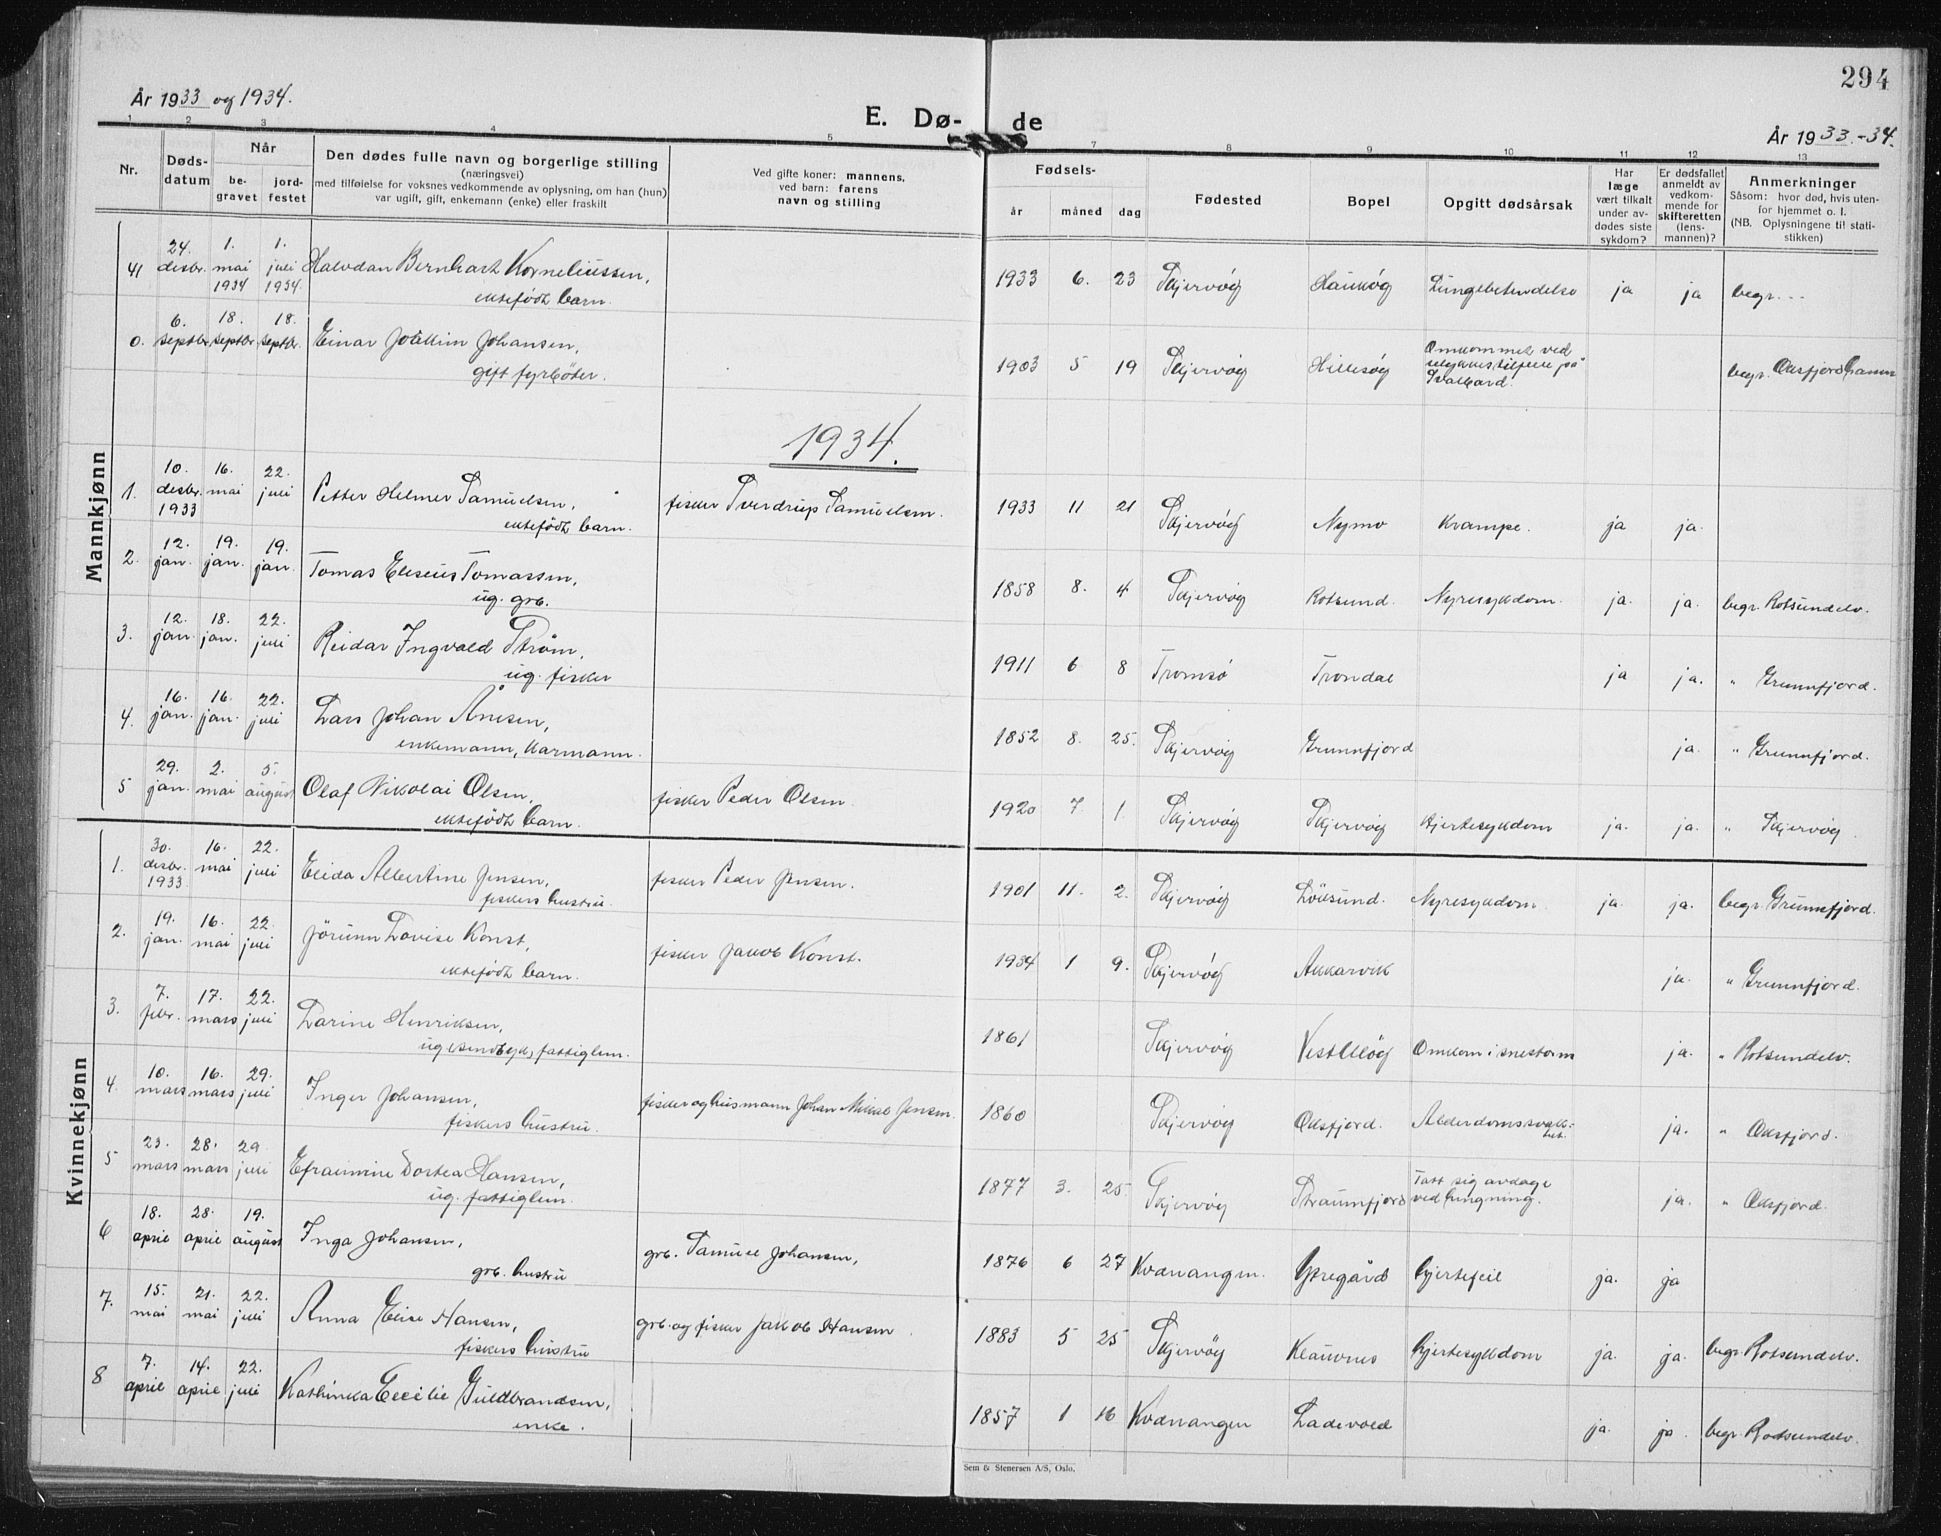 294
År 1933 og 1934.
E. Dø- de
År 1933-34.
1 2 3 4 5 7 8 9 10 11 12 13
Nr.
Døds-
datum
Når
be-
gravet
jord-
festet
Den dødes fulle navn og borgerlige stilling
(næringsvei)
med tilføielse for voksnes vedkommende av oplysning, om han (hun)
var ugift, gift, enkemann (enke) eller fraskilt
Ved gifte koner: mannens,
ved barn: farens
navn og stilling
Fødsels-
år måned dag
Fødested
Bopel
Opgitt dødsårsak
Har
læge
vært tilkalt
under av-
dødes siste
sykdom?
Er dødsfallet
anmeldt av
vedkom-
mende for
skifteretten
(lens-
mannen)?
Anmerkninger
Såsom: hvor død, hvis uten-
for hjemmet o. l.
(NB. Oplysningene til stati-
stikken)
Mannkjønn
41 24. desbr. 1. mai 1934 1. juli 1934. Halvdan Bernhart Korneliussen, 1933 6. 23 Skjervøy Haukøy Lungebetendelse ja ja begr. ...
ektefödt barn.
0. 6. septbr. 18. septbr. 18. septbr. Einar Joakim Johansen, 1903 5 19 Skjervøy Hillesøy Omkommet ved ulykkestilfelle på Svalbard. begr. Oksfjordhamn
gift fyrböter.
1934.
1. 10. desbr. 1933 16. mai 22. juli Petter Helmer Samuelsen, fisker Sverdrup Samuelsen. 1933 11 21 Skjervøy Nymo Krampe. ja ja.
ektefödt barn.
2. 12. jan. 19. jan. 19. jan. Tomas Eliseus Tomassen, 1858 8. 4 Skjervøy Rotsund. Nyresykdom. ja. ja. begr. Rotsundelv.
ug. grb.
3. 12. jan. 18. jan. 22. juli Reidar Ingvald Strøm, 1911 6 8 Tromsö Trondal ja ja. " Grunnfjord.
ug. fisker
4. 16. jan. 16. jan. 22. juli Lars Johan Ånesen, 1852 8. 25. Skjervøy Grunnfjord ja. " Grunnfjord.
enkemann, kårmann.
5 29. jan. 2. mai 5. august Olaf Nikolai Olsen, fisker Peder Olsen. 1920 7. 1. Skjervøy Skjervøy Hjertesykdom ja. ja. " Skjervøy.
ektefödt barn.
Kvinnekjønn
1. 30. desbr. 1933. 16. mai 22. juli Elida Albertine Jensen, fisker Peder Jensen. 1901 11. 2. Skjervøy Löksund. Nyresykdom. ja. ja. begr. Grunnfjord.
fiskers hustru.
2. 19. jan. 16. mai 22. juli Jörunn Lovise Konst, fisker Jakob Konst. 1934 1 9. Skjervøy Akkarvik ja. " Grunnfjord.
ektefödt barn.
3. 7. febr. 17. mars 22. juli Larine Henriksen, 1861 Skjervøy Vest Uløy Omkom i snestorm ja. " Rotsundelv.
ug. fattiglem.
4. 10. mars 16. mars 29. juli Inger Johansen, fisker og husmann Johan Mikal Jensen. 1860 Skjervøy Oksfjord. Alderdomssvakhet. ja. " Oksfjord.
fiskers hustru.
5 23. mars 28. mars 29. juli Efraimine Dortea Hansen, 1877 3. 25. Skjervøy Straumfjord Tatt sig avdage ved hengning. ja. " Oksfjord.
ug. fattiglem.
6 18. april 28. april 19. august Inga Johansen, grb. Samuel Johansen, 1876 6 27 Kvænangen. Spregård hjertefeil ja. ja
grb. hustru
7. 15. mai 21. mai 22. juli Anna Elise Hansen, grb. og fisker Jakob Hansen. 1883 5 25 Skjervöy Klauvnes hjertesykdom ja. ja. begr. Rotsundelv.
fiskers hustru
8 7. april 14. april 22. juli Kathinka Cecilie Guldbrandsen, 1857 1 16 Kvænangen Ladevold ja. ja. begr. Rotsundelv.
enke.
Sem & Stenersen A/S, Oslo.